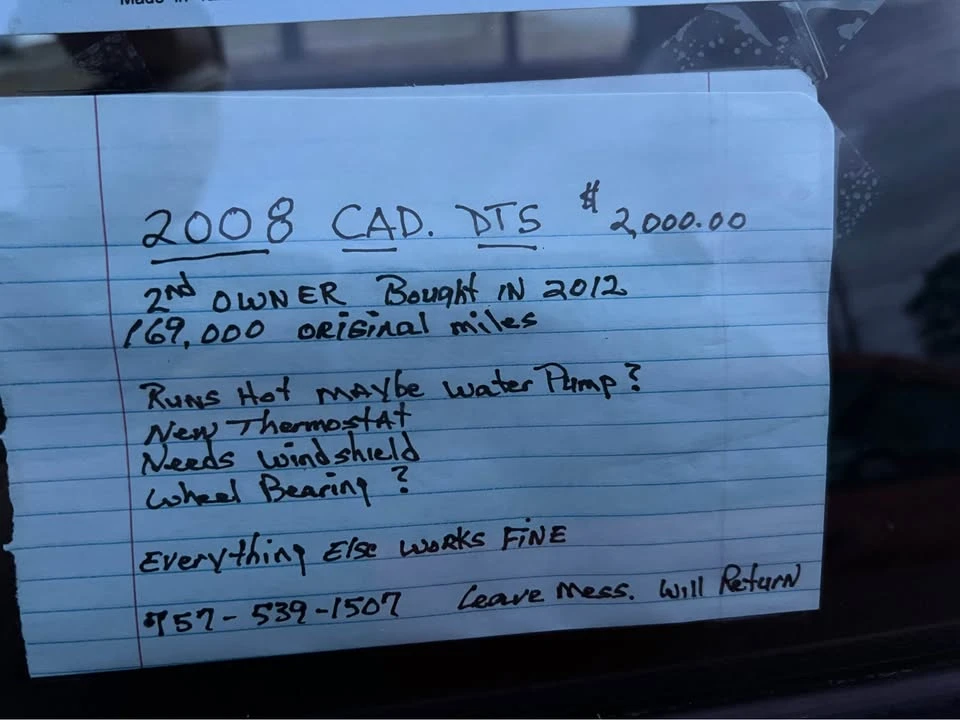 Made in
2008 CAD. DTS $2,000.00
2nd OWNER Bought IN 2012
169,000 ORIGINAL miles
RUNS Hot MAYBE water Pump?
New Thermostat
Needs windshield
Wheel Bearing?
Everything Else works FINE
757-539-1507 Leave Mess. Will Return